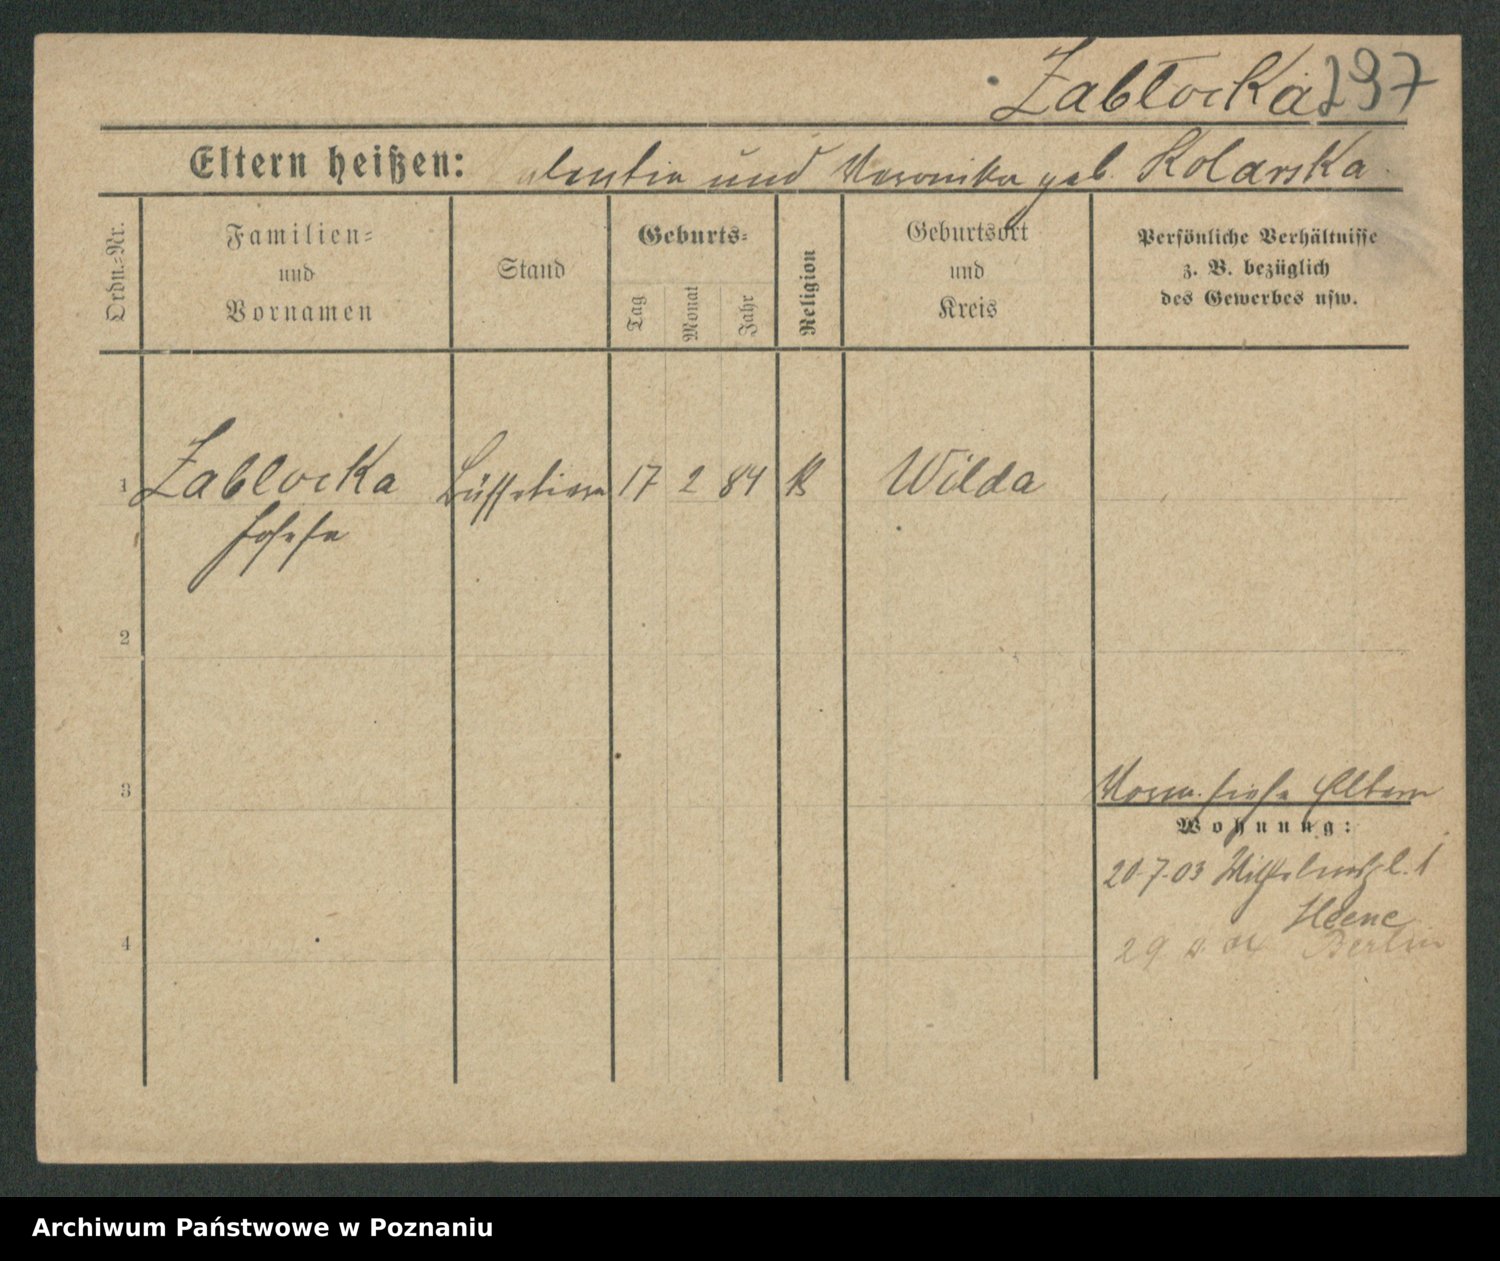 Zabłocka 297
Eltern heißen: Valentin und Veronika geb. Kolarska
Ordn.-Nr.
Familien-
und
Vornamen
Stand
Geburts-
Tag
Monat
Jahr
Religion
Geburtsort
und
Kreis
Persönliche Verhältnisse
z. B. bezüglich
des Gewerbes usw.
1 Zablocka Büffetiere 17 2 84 K Wilda
Josefa
2
3
Vorm. siehe Eltern
Wohnung:
20.7.03 Wilhelmspl. 1
Heene
4
29 Berlin
Archiwum Państwowe w Poznaniu